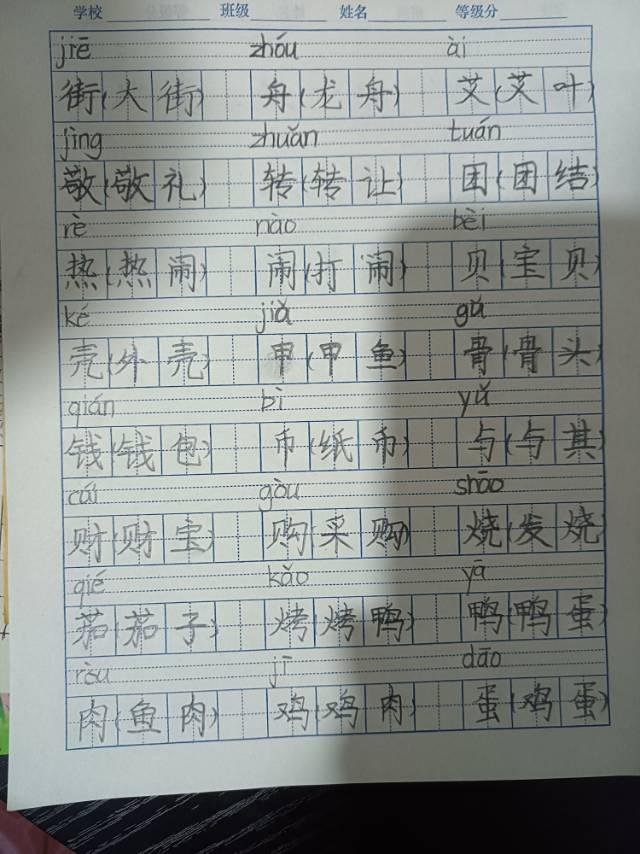 学校 班级 姓名 等级分
jiē zhóu ài
街(大街) 舟(龙舟) 艾(艾叶)
jìng zhuǎn tuán
敬(敬礼) 转(转让) 团(团结)
rè nào bèi
热(热闹) 闹(打闹) 贝(宝贝)
ké jiǎ gǔ
壳(外壳) 甲(甲鱼) 骨(骨头)
qián bì yǔ
钱(钱包) 币(纸币) 与(与其)
cái gòu shāo
财(财宝) 购(采购) 烧(发烧)
qié kǎo yā
茄(茄子) 烤(烤鸭) 鸭(鸭蛋)
ròu jī dāo
肉(鱼肉) 鸡(鸡肉) 蛋(鸡蛋)